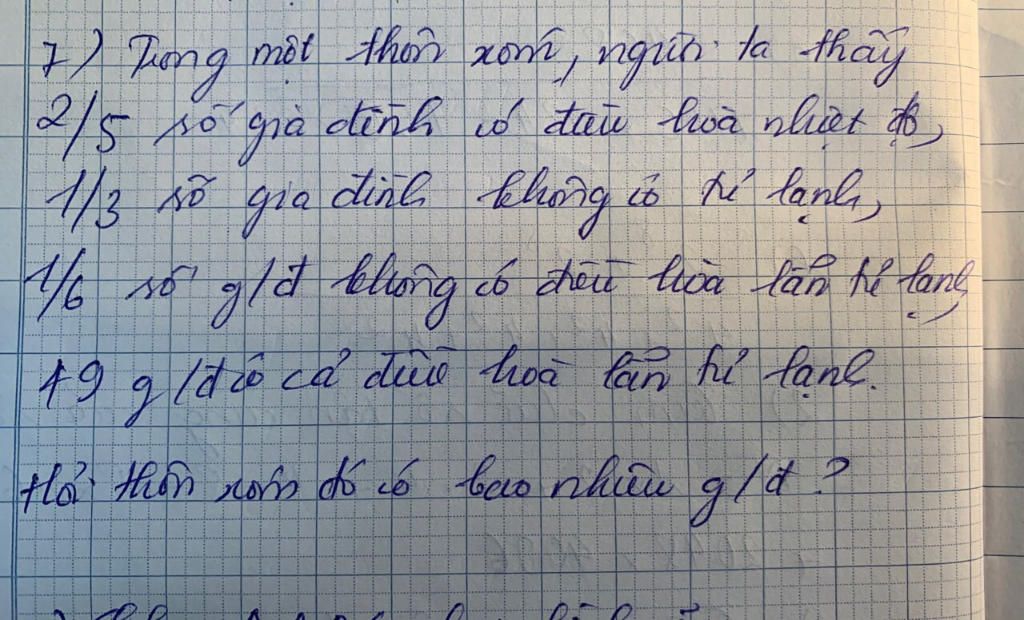 7) Trong một thôn xóm, người ta thấy
2/5 số gia đình có điều hoà nhiệt độ,
1/3 số gia đình không có tủ lạnh,
1/6 số g/đ không có điều hòa lẫn tủ lạnh,
49 g/đ có cả điều hoà lẫn tủ lạnh.
Hỏi thôn xóm đó có bao nhiêu g/đ?